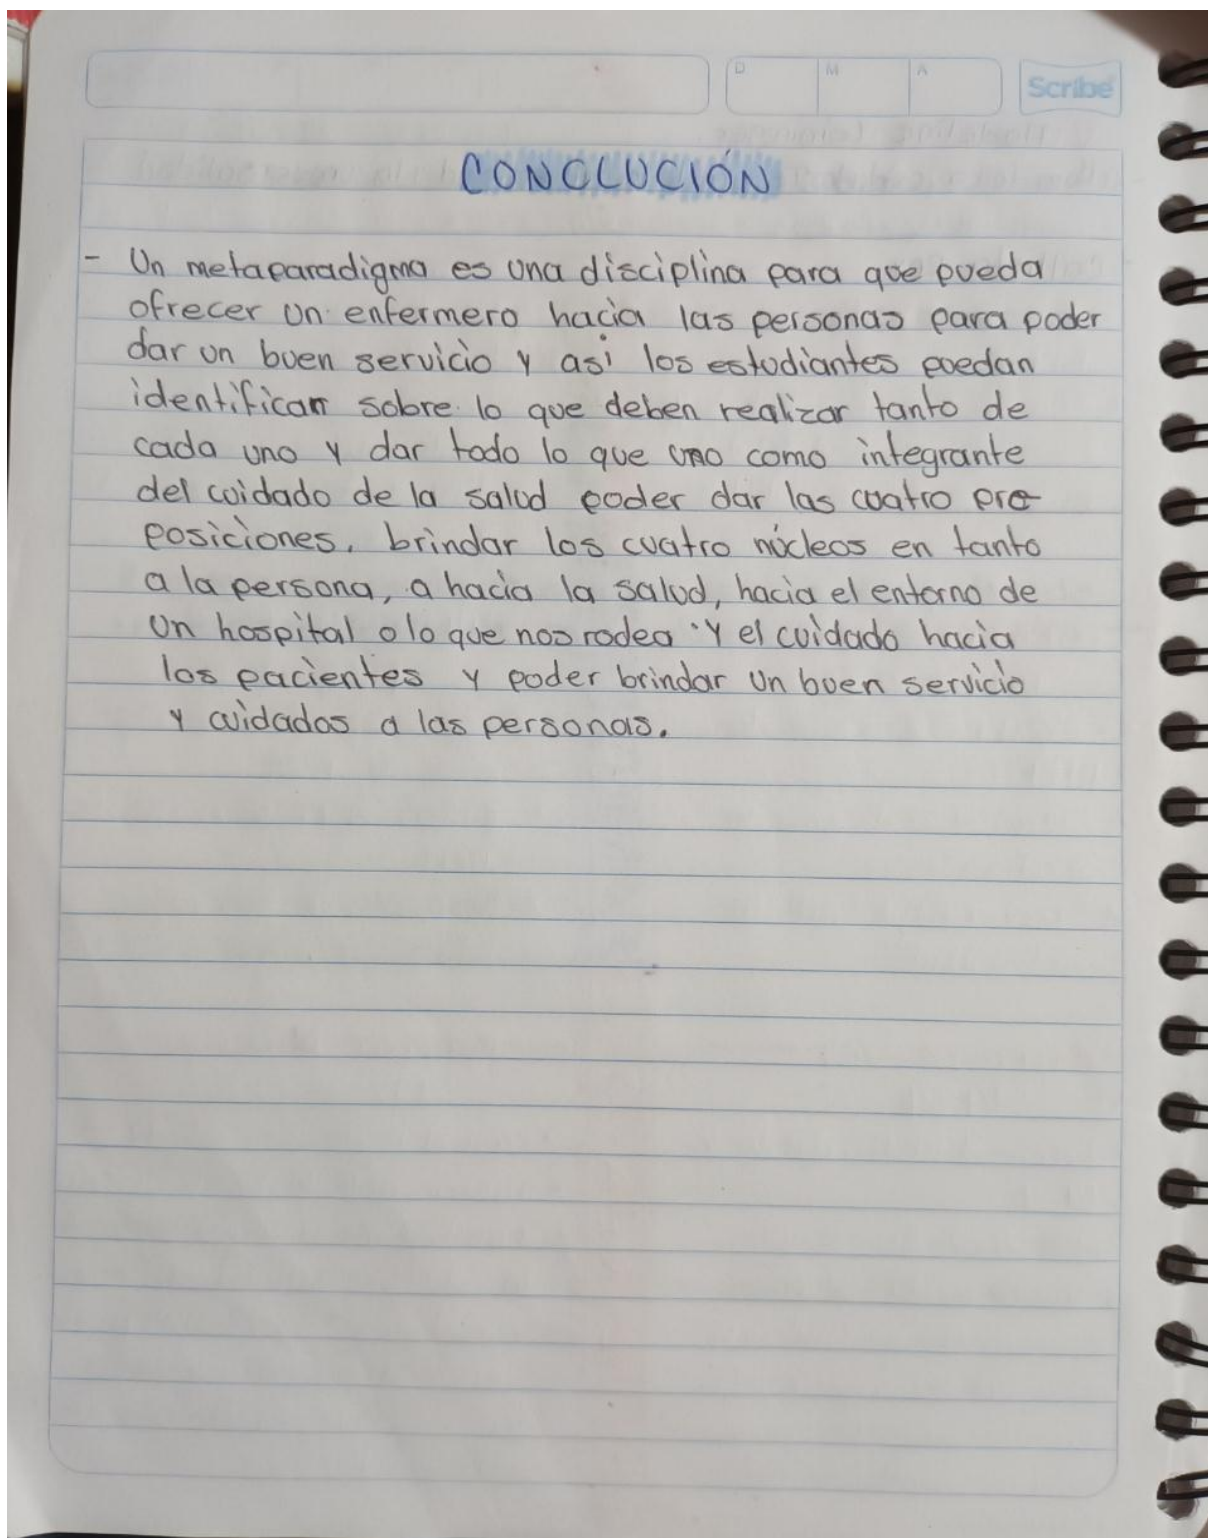 D M A
Scribe
CONCLUCIÓN
- Un metaparadigma es una disciplina para que pueda
ofrecer un enfermero hacia las personas para poder
dar un buen servicio y asi los estudiantes puedan
identificar sobre lo que deben realizar tanto de
cada uno y dar todo lo que uno como integrante
del cuidado de la salud poder dar las cuatro pro
posiciones, brindar los cuatro núcleos en tanto
a la persona, a hacia la salud, hacia el entorno de
un hospital o lo que nos rodea y el cuidado hacia
los pacientes y poder brindar un buen servicio
y cuidados a las personas.